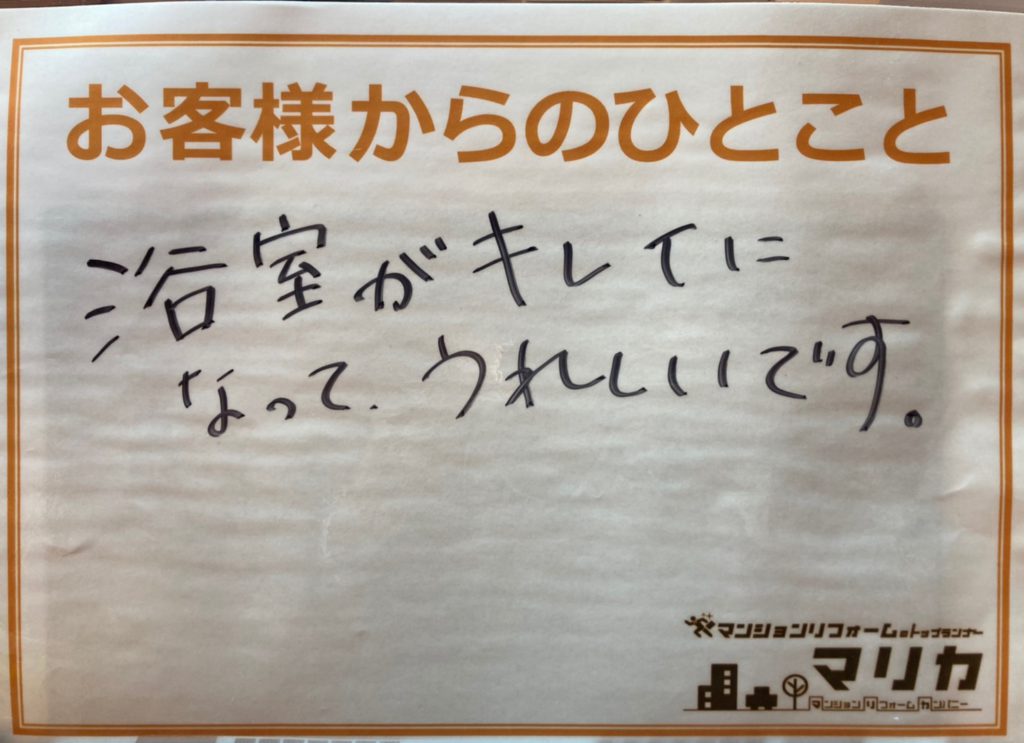 お客様からのひとこと
浴室がキレイに
なって、うれしいです。
マンションリフォームのトップランナー
マリカ
マンションリフォームカンパニー